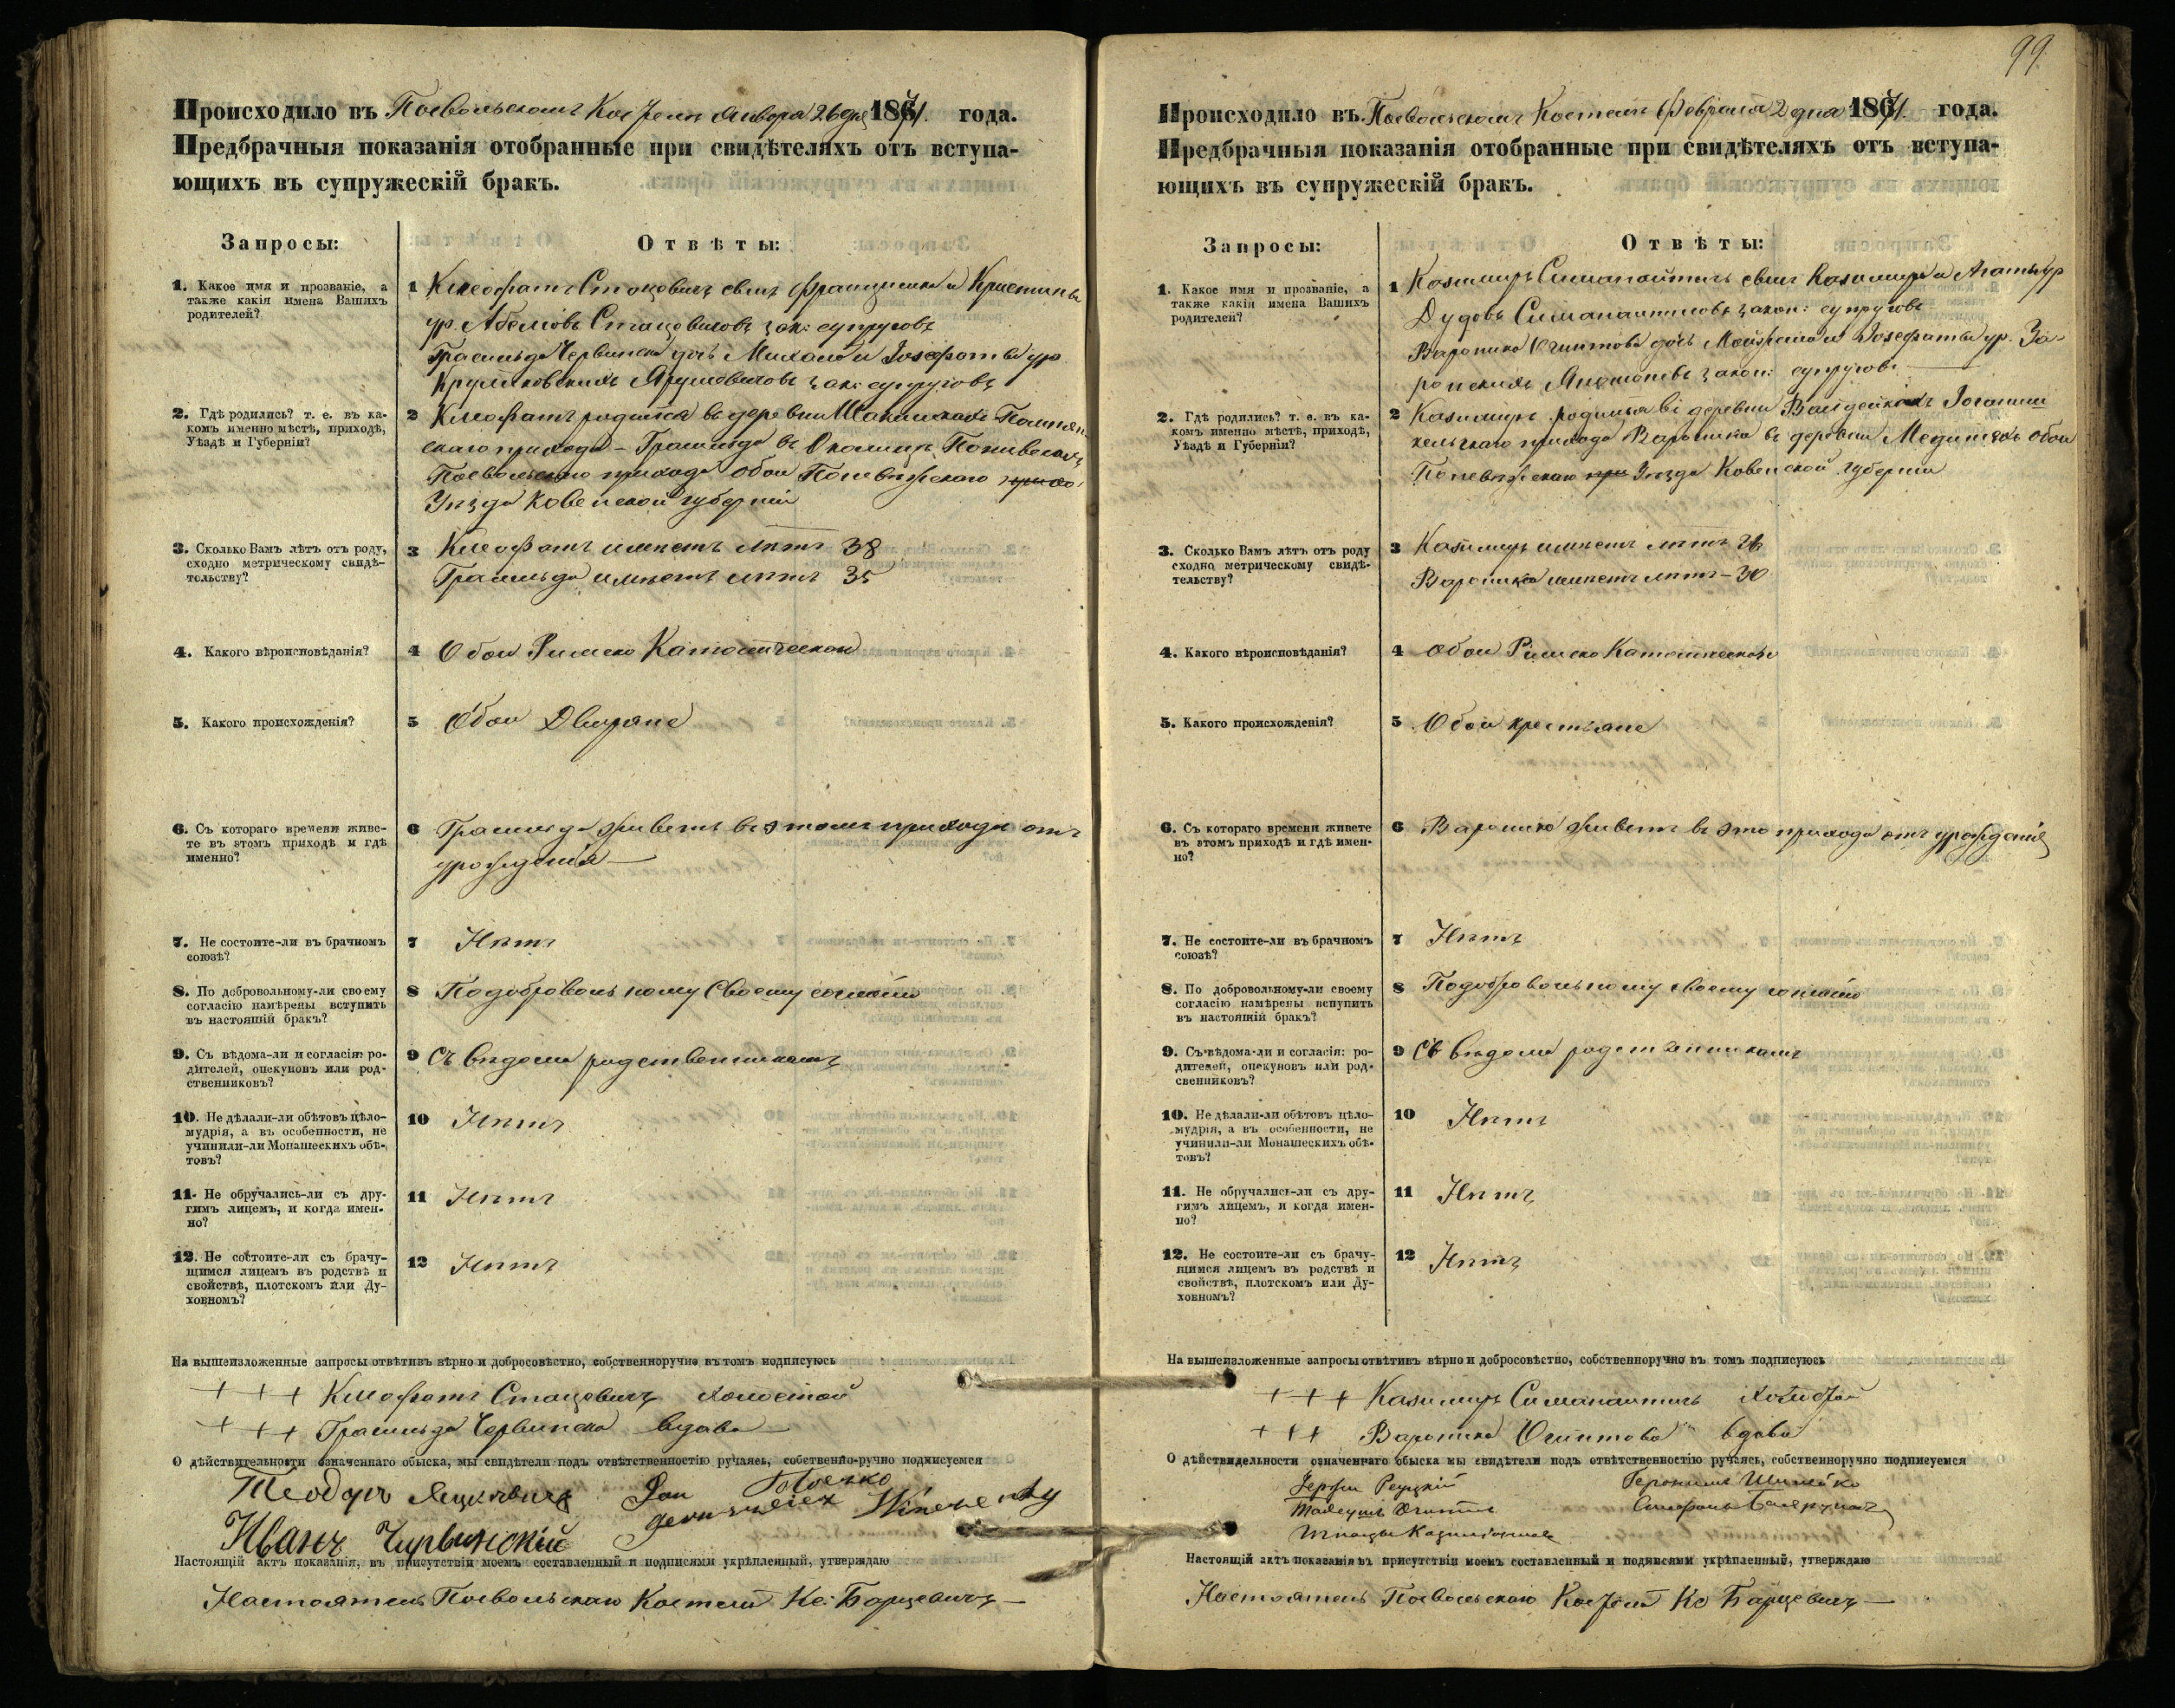 Происходило въ Поевольскомъ Костелѣ Января 26 дня 1871 года.
Предбрачныя показанія отобранные при свидѣтеляхъ отъ вступа-
ющихъ въ супружескій бракъ.
Запросы:
Отвѣты:
1. Какое имя и прозваніе, а
также какія имена Вашихъ
родителей?
1 Клеофатъ Стацевичъ сынъ Францишка и Кристины
ур. Абелювъ Стацевичовъ зак: супруговъ
Грасильда Червинска дочь Михала и Іозефаты ур
Ярушевичовъ зак: супруговъ
2. Гдѣ родились? т. е. въ ка-
комъ именно мѣстѣ, приходѣ,
Уѣздѣ и Губерніи?
2 Клеофатъ родился въ деревни
скаго прихода – Грасильда въ Околицѣ
Поевольскаго прихода обои Поневѣжскаго прихо
Уѣзда Ковенской губерніи
3. Сколько Вамъ лѣтъ отъ роду,
сходно метрическому свидѣ-
тельству?
3 Клеофатъ имѣетъ лѣтъ 38
Грасильда имѣетъ лѣтъ 35
4. Какого вѣроисповѣданія?
4 Обои Римско Католической
5. Какого происхожденія?
5 Обои Дворяне
6. Съ котораго времени живе-
те въ этомъ приходѣ и гдѣ
именно?
6 Грасильда живетъ въ этомъ приходѣ отъ
урожденія —
7. Не состоите-ли въ брачномъ
союзѣ?
7 Нѣтъ
8. По добровольному-ли своему
согласію намѣрены вступить
въ настоящій бракъ?
8 Подобровольному своему согласію
9. Съ вѣдома-ли и согласія: ро-
дителей, опекуновъ или род-
ственниковъ?
9 Съ вѣдома родственникамъ
10. Не дѣлали-ли обѣтовъ цѣло-
мудрія, а въ особенности, не
учинили-ли Монашескихъ обѣ-
товъ?
10 Нѣтъ
11. Не обручались-ли съ дру-
гимъ лицемъ, и когда имен-
но?
11 Нѣтъ
12. Не состоите-ли съ брачу-
щимся лицемъ въ родствѣ и
свойствѣ, плотскомъ или Ду-
ховномъ?
12 Нѣтъ
На вышеизложенные запросы отвѣтивъ вѣрно и добросовѣстно, собственноручно въ томъ подписуюсь
+ + + Клеофатъ Стацевичъ холостой
+ + + Грасильда Червинска вдова
О дѣйствительности означеннаго обыска, мы свидѣтели подъ отвѣтственностію ручаясь, собственно-ручно подписуемся
Теодоръ Яцкевичъ Jan
Иванъ Чирвинскій
Настоящій актъ показанія, въ присутствіи моемъ составленный и подписями укрѣпленный, утверждаю
Настоятель Поевольскаго Костела Кс: Барцевичъ —
99
Происходило въ Поевольскомъ Костелѣ Февраля 2 дня 1871 года.
Предбрачныя показанія отобранные при свидѣтеляхъ отъ вступа-
ющихъ въ супружескій бракъ.
Запросы:
Отвѣты:
1. Какое имя и прозваніе, а
также какія имена Вашихъ
родителей?
1 Казимиръ сынъ Казимира и Агаты ур
Дудовъ закон: супруговъ
Вароника дочь и Іозефаты ур. За-
закон: супруговъ —
2. Гдѣ родились? т. е. въ ка-
комъ именно мѣстѣ, приходѣ,
Уѣздѣ и Губерніи?
2 Казимиръ родился въ деревни
прихода Вароника въ деревни обои
Поневѣжскаго при Уѣзда Ковенской губерніи
3. Сколько Вамъ лѣтъ отъ роду
сходно метрическому свидѣ-
тельству?
3 Казимиръ имѣетъ лѣтъ
Вароника имѣетъ лѣтъ – 30
4. Какого вѣроисповѣданія?
4 Обои Римско Католической
5. Какого происхожденія?
5 Обои крестьяне
6. Съ котораго времени живете
въ этомъ приходѣ и гдѣ имен-
но?
6 Вароника живетъ въ это прихода отъ урожденія
7. Не состоите-ли въ брачномъ
союзѣ?
7 Нѣтъ
8. По добровольному-ли своему
согласію намѣрены вспупить
въ настоящій бракъ?
8 Подобровольному своему согласію
9. Съ вѣдома-ли и согласія: ро-
дителей, опекуновъ или род-
свенниковъ?
9 Съ вѣдома родственникамъ
10. Не дѣлали-ли обѣтовъ цѣло-
мудрія, а въ особенности, не
учинили-ли Монашескихъ обѣ-
товъ?
10 Нѣтъ
11. Не обручались-ли съ дру-
гимъ лицемъ, и когда имен-
но?
11 Нѣтъ
12. Не состоите-ли съ брачу-
щимся лицемъ въ родствѣ и
свойствѣ, плотскомъ или Ду-
ховномъ?
12 Нѣтъ
На вышеизложенные запросы отвѣтивъ вѣрно и добросовѣстно, собственноручно въ томъ подписуюсь
+ + + Казимиръ холостой
+ + + Вароника вдова
О дѣйствидельности означеннаго обыска мы свидѣтели подъ отвѣтственностію ручаясь, собственноручно подписуемся
Настоящій актъ показанія въ присутствіи моемъ составленный и подписями укрѣпленный, утверждаю
Настоятель Поевольскаго Костела Кс Барцевичъ —